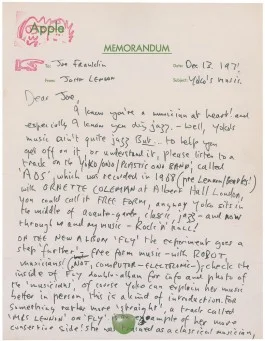 Apple
MEMORANDUM
To: Joe Franklin Date: Dec 13, 1971
From: JOHN LENNON Subject: Yoko's music.
Dear Joe,
I know you're a musician at heart! and
especially I know you dig jazz. – Well, Yoko's
music ain't quite jazz But... to help you
get off on it, or understand it, please listen to a
track on the YOKO/ONO/PLASTIC ONO BAND, called
'AOS' which was recorded in 1968 (pre Lennon/Beatles!)
with ORNETTE COLEMAN at Albert Hall London,
you could call it FREE FORM, anyway Yoko sits in
the middle of avante-garde, classic, jazz – and now
through us and my music – Rock 'n' Roll!
ON THE NEW ALBUM 'FLY' the experiment goes a
step further! – free form music – with ROBOT
musicians! (NOT, COMPUTER-ELECTRONIC) (check the
inside of Fly double-album for info and photo of
the 'musicians', of course Yoko can explain her music
better in person, this is a kind of introduction. For
something rather more 'straight', a track called
'MRS LENNON' on 'FLY' example of her more
conservative side! She was trained as a classical musician,